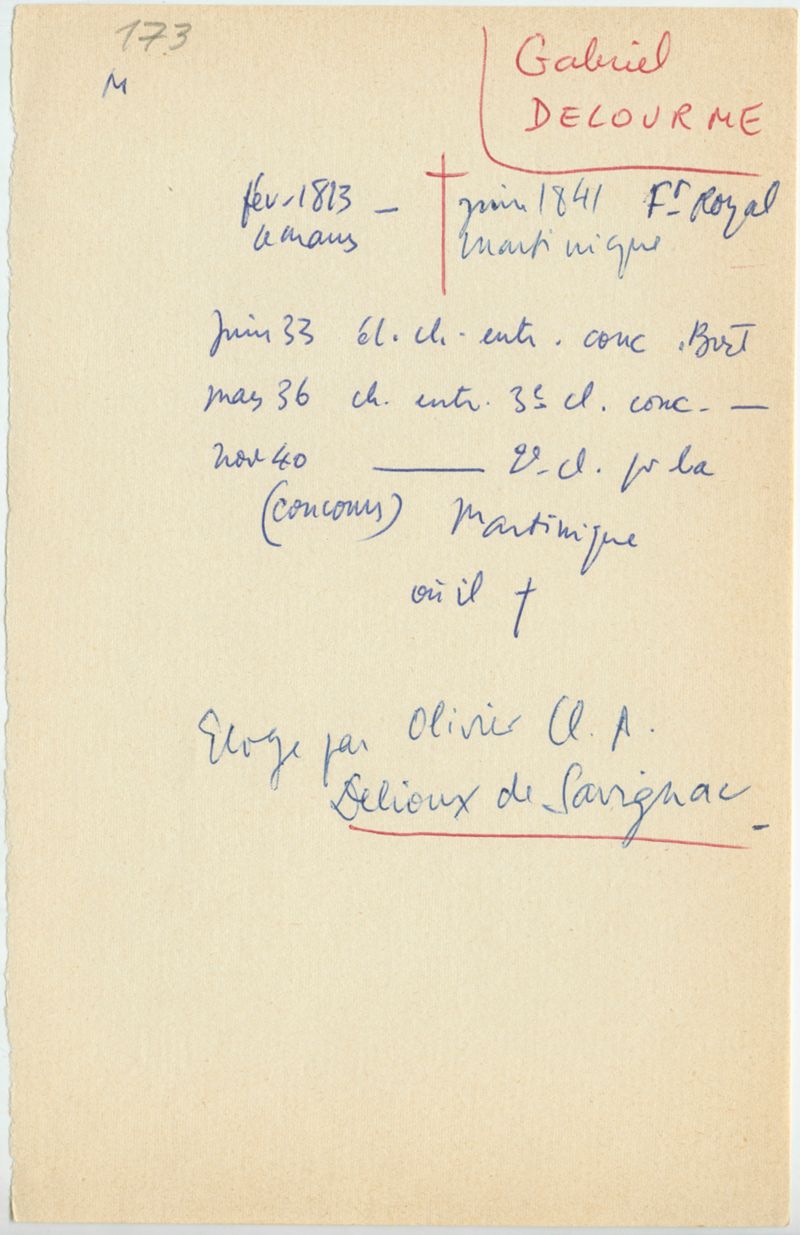 173
M
Gabriel
DELOURME
fév. 1813 — † juin 1841 Ft Royal
Le mans Martinique
Juin 33 él. ch. entr. conc. Brest
mars 36 ch. entr. 3e cl. conc. —
nov 40 —— 2e cl. pr la
(concours) Martinique
où il †
Eloge par Olivier Cl. A.
Delioux de Savignac